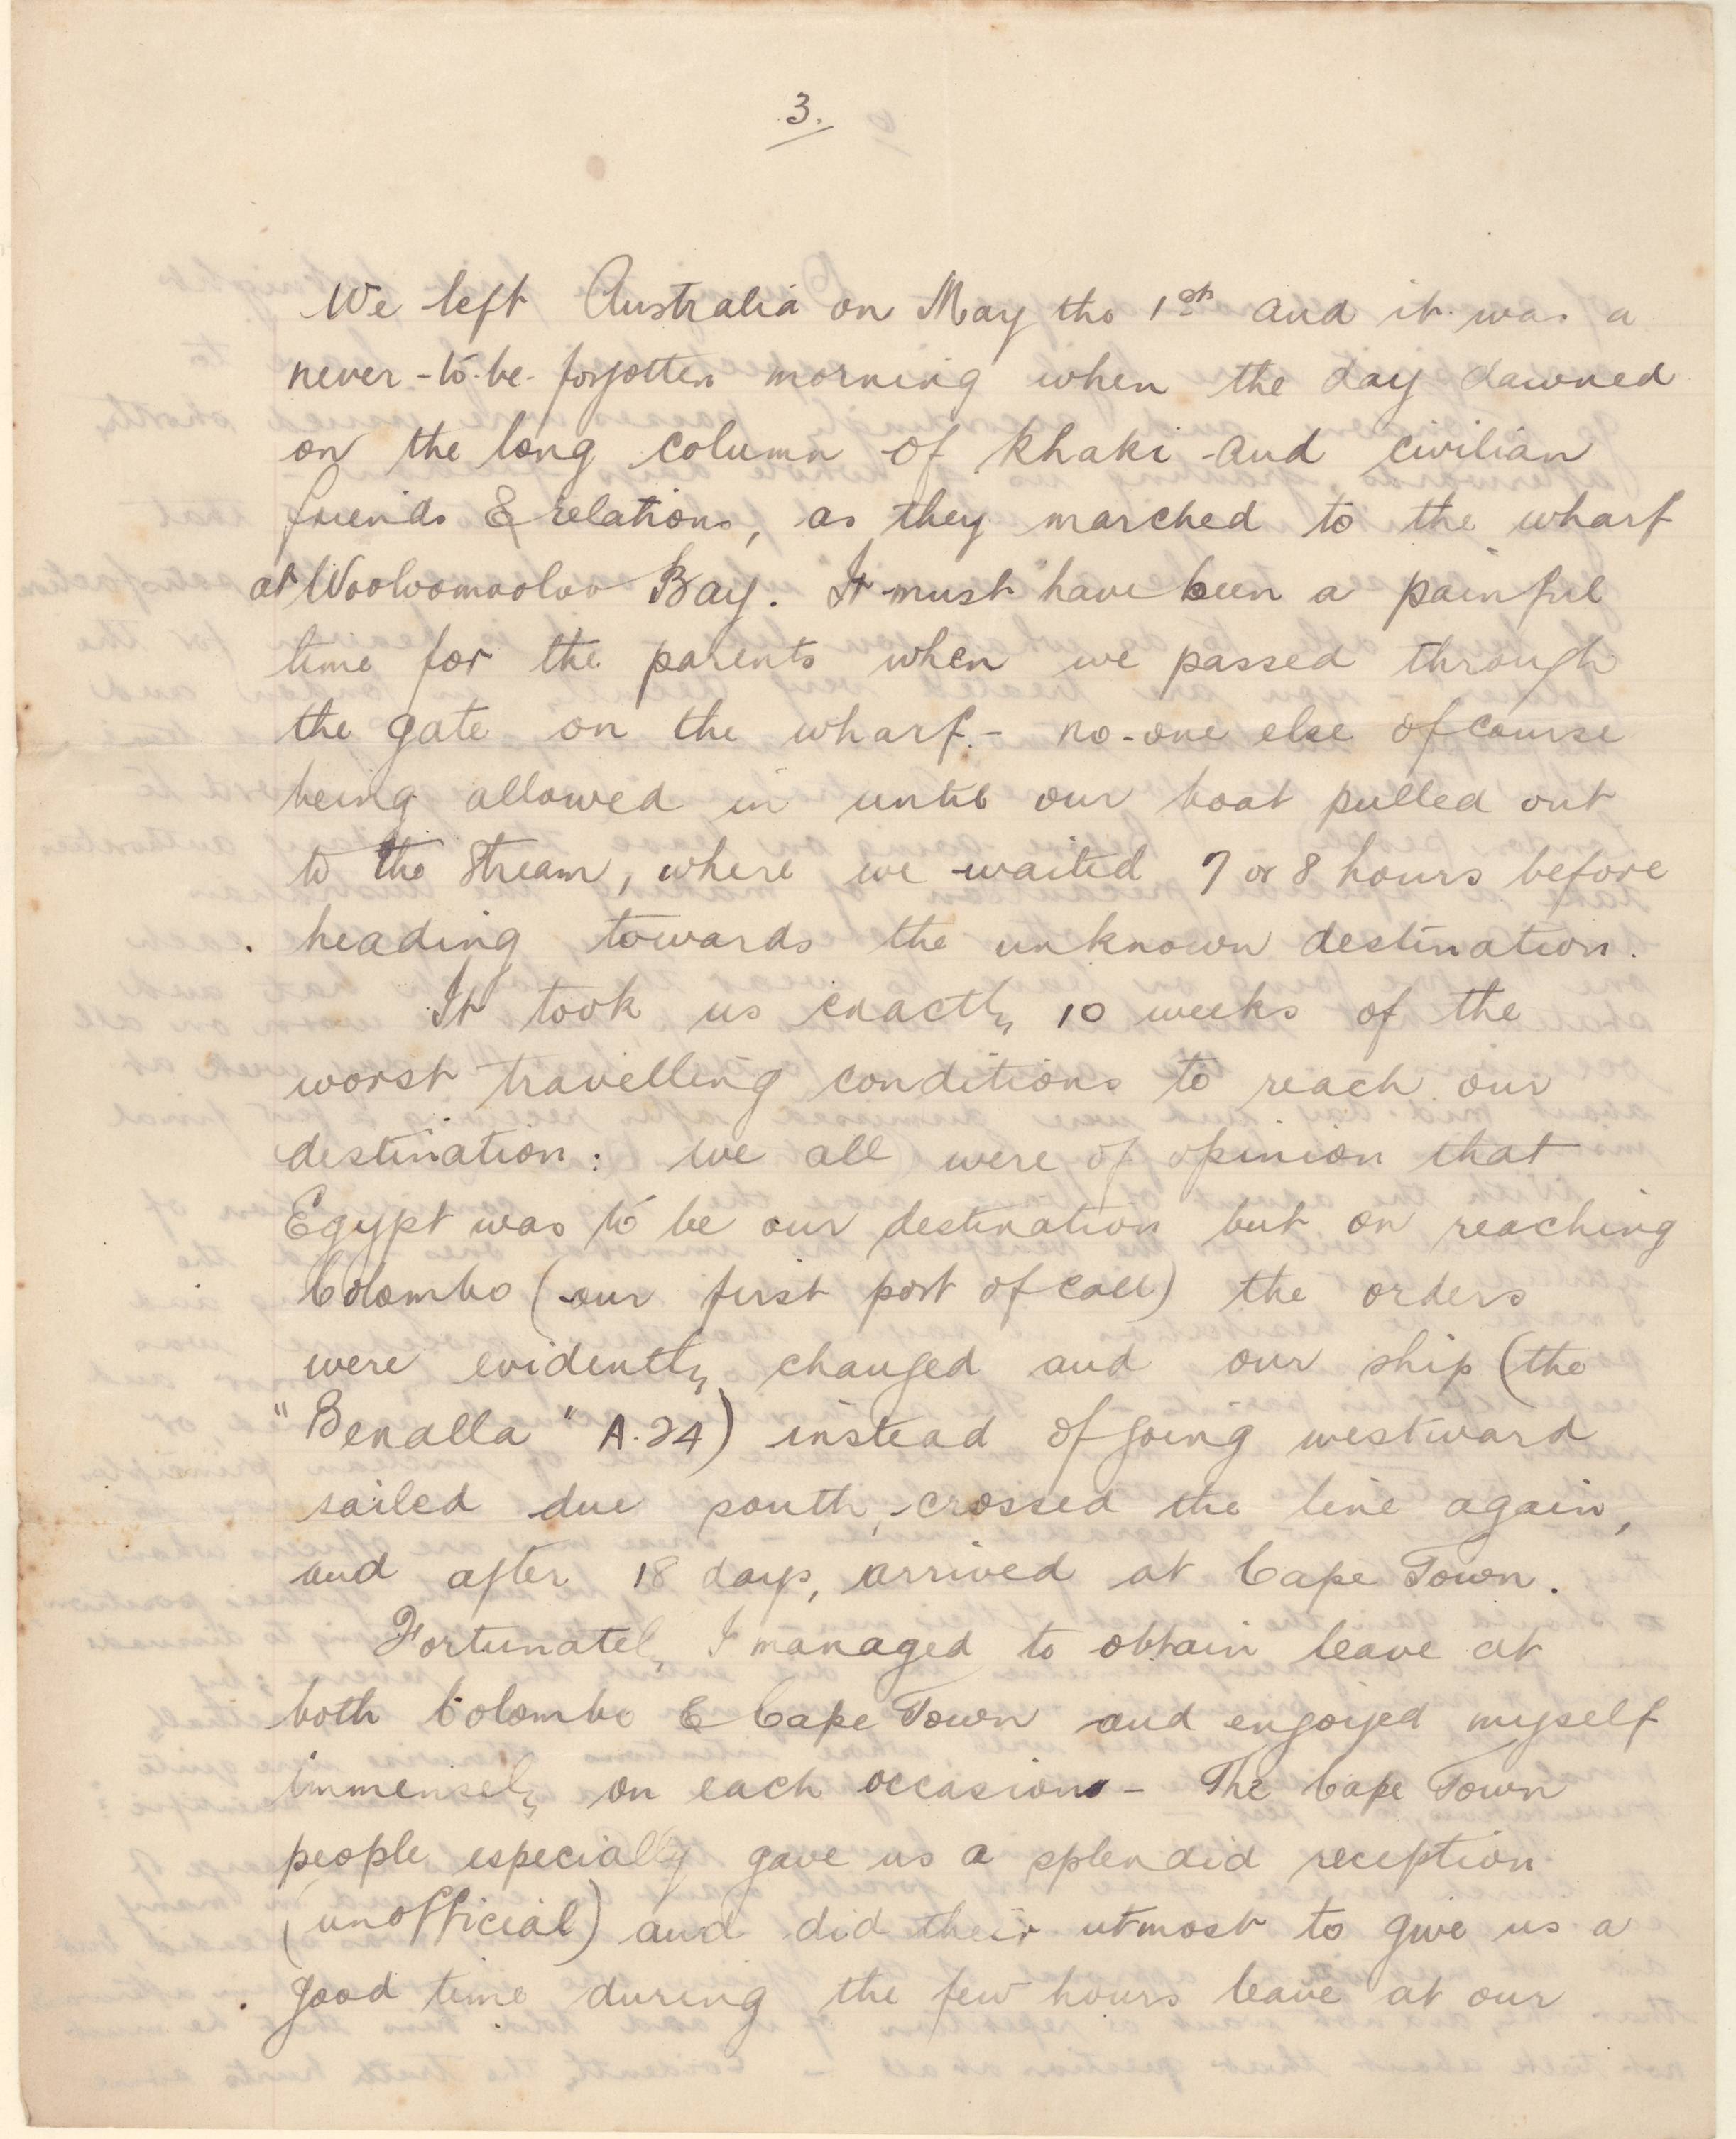 3.
We left Australia on May the 1st and it was a
never-to-be-forgotten morning when the day dawned
on the long column of khaki and civilian
friends & relations, as they marched to the wharf
at Wooloomooloo Bay. It must have been a painful
time for the parents when we passed through
the gate on the wharf - no-one else of course
being allowed in until our boat pulled out
to the stream, where we waited 7 or 8 hours before
heading towards the unknown destination.
It took us exactly 10 weeks of the
worst travelling conditions to reach our
destination: we all were of opinion that
Egypt was to be our destination but on reaching
Colombo (our first port of call) the orders
were evidently changed and our ship (the
"Benalla" A.24) instead of going westward
sailed due south, crossed the line again,
and after 18 days, arrived at Cape Town.
Fortunately I managed to obtain leave at
both Colombo & Cape Town and enjoyed myself
immensely on each occasion - The Cape Town
people especially gave us a splendid reception
(unofficial) and did their utmost to give us a
good time during the few hours leave at our